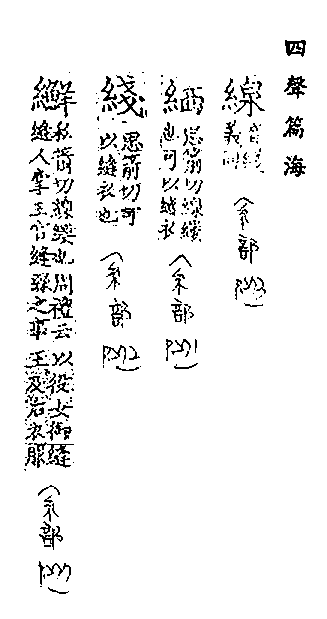 四聲篇海
線
音綫
義同
(糸部
思箭切線縷
也可以縫衣
(糸部
綫
思箭切可
以縫衣也
(糸部
私箭切線縷也周禮云
縫人掌王宮縫線之事
以役女御縫
王及后衣服
(糸部